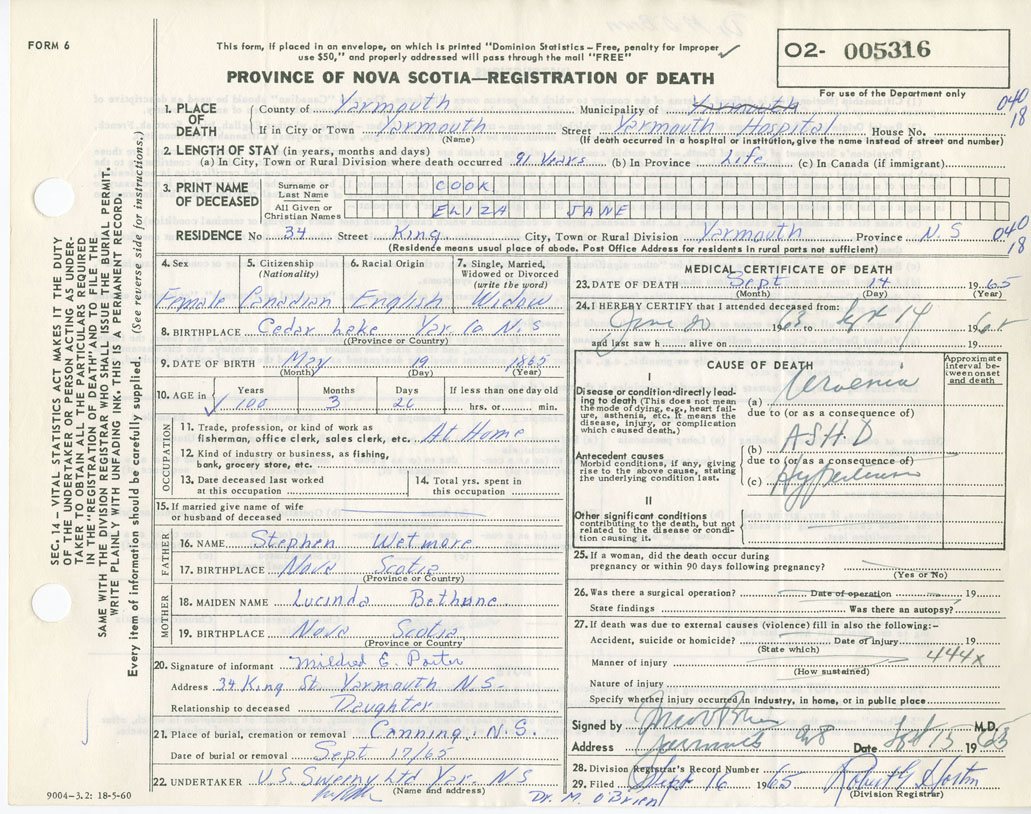 FORM 6
This form, if placed in an envelope, on which is printed "Dominion Statistics – Free, penalty for improper
use $50," and properly addressed will pass through the mail "FREE"
PROVINCE OF NOVA SCOTIA—REGISTRATION OF DEATH
O2- 005316
For use of the Department only
040
18
1. PLACE OF DEATH County of Yarmouth Municipality of Yarmouth
If in City or Town Yarmouth Street Yarmouth Hospital House No.
(Name) (If death occurred in a hospital or institution, give the name instead of street and number)
2. LENGTH OF STAY (in years, months and days)
(a) In City, Town or Rural Division where death occurred 91 Years (b) In Province Life (c) In Canada (if immigrant)
3. PRINT NAME OF DECEASED Surname or Last Name COOK
All Given or Christian Names ELIZA JANE
RESIDENCE No 34 Street King City, Town or Rural Division Yarmouth Province N.S 040
18
(Residence means usual place of abode. Post Office Address for residents in rural parts not sufficient)
4. Sex 5. Citizenship (Nationality) 6. Racial Origin 7. Single, Married, Widowed or Divorced (write the word)
Female Canadian English Widow
8. BIRTHPLACE Cedar Lake Yar. Co. N.S
(Province or Country)
9. DATE OF BIRTH May 19 1865
(Month) (Day) (Year)
10. AGE in Years Months Days If less than one day old
100 3 26 hrs. or min.
OCCUPATION
11. Trade, profession or kind of work as
fisherman, office clerk, sales clerk, etc. At Home
12. Kind of industry or business, as fishing,
bank, grocery store, etc.
13. Date deceased last worked
at this occupation
14. Total yrs. spent in
this occupation
15. If married give name of wife
or husband of deceased
FATHER
16. NAME Stephen Wetmore
17. BIRTHPLACE Nova Scotia
(Province or Country)
MOTHER
18. MAIDEN NAME Lucinda Bethune
19. BIRTHPLACE Nova Scotia
(Province or Country)
20. Signature of informant Mildred E. Porter
Address 34 King St. Yarmouth N.S.
Relationship to deceased Daughter
21. Place of burial, cremation or removal Canning, N.S.
Date of burial or removal Sept 17/65
22. UNDERTAKER V.S. Sweeny Ltd Yar. N S
(Name and address)
9004-3.2: 18-5-60
MEDICAL CERTIFICATE OF DEATH
23. DATE OF DEATH Sept 14 1965
(Month) (Day) (Year)
24. I HEREBY CERTIFY that I attended deceased from:
June 20 1963 to Sept 14 1965
and last saw h alive on 19
CAUSE OF DEATH
Approximate interval between onset and death
I
Disease or condition directly leading to death (This does not mean
the mode of dying, e.g., heart failure, asthenia, etc. It means the
disease, injury, or complication
which caused death.)
(a) Uraemia
due to (or as a consequence of)
Antecedent causes
Morbid conditions, if any, giving
rise to the above cause, stating
the underlying condition last.
(b) A.S.H.D
due to (or as a consequence of)
(c) Hypertension
II
Other significant conditions
contributing to the death, but not
related to the disease or condition causing it.
25. If a woman, did the death occur during
pregnancy or within 90 days following pregnancy?
(Yes or No)
26. Was there a surgical operation? Date of operation 19
State findings Was there an autopsy?
27. If death was due to external causes (violence) fill in also the following:–
Accident, suicide or homicide? Date of injury 19
(State which) 444X
Manner of injury
(How sustained)
Nature of injury
Specify whether injury occurred in industry, in home, or in public place
Signed by M.D.
Address Yarmouth NS Date Sept 15 1965
28. Division Registrar's Record Number
29. Filed Sept 16 1965 Robert G Horton
(Division Registrar)
Dr. M. O'Brien
SEC. 14 – VITAL STATISTICS ACT MAKES IT THE DUTY
OF THE UNDERTAKER OR PERSON ACTING AS UNDER-
TAKER TO OBTAIN ALL THE PARTICULARS REQUIRED
IN THE "REGISTRATION OF DEATH" AND TO FILE THE
SAME WITH THE DIVISION REGISTRAR WHO SHALL ISSUE THE BURIAL PERMIT.
WRITE PLAINLY WITH UNFADING INK. THIS IS A PERMANENT RECORD.
Every item of information should be carefully supplied. (See reverse side for instructions.)